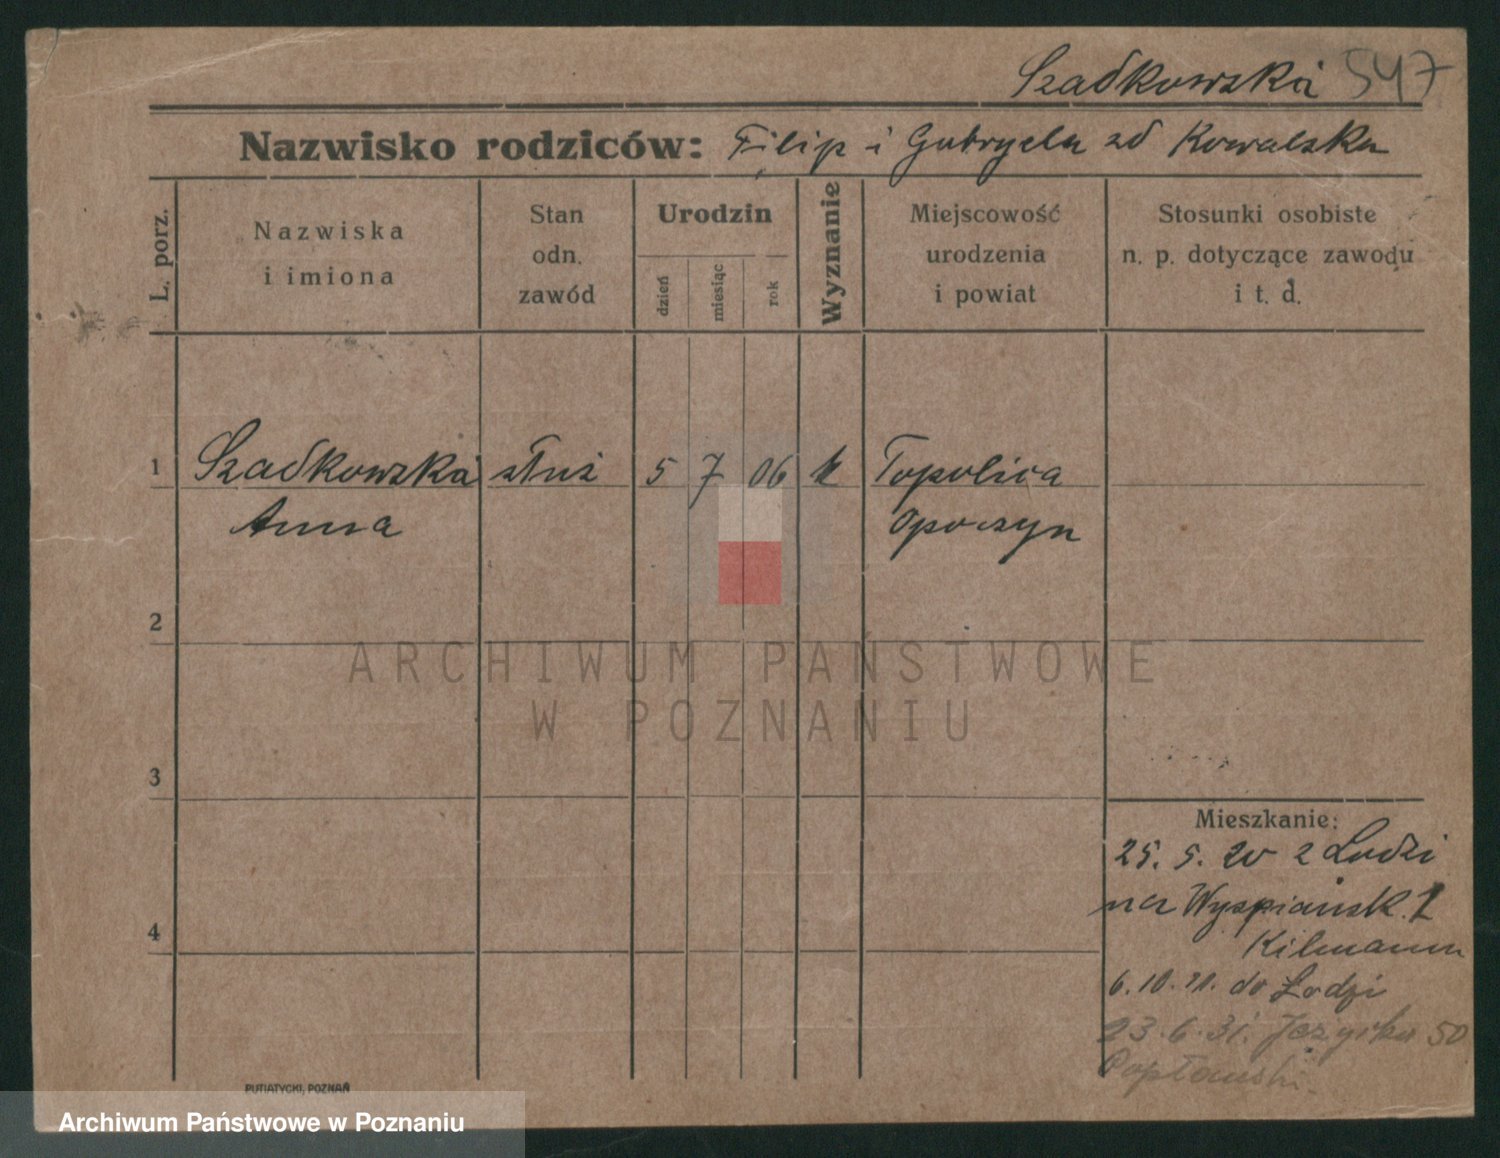 Szadkowska 547
Nazwisko rodziców: Filip i Gabryela zd Kowalska
L. porz.
Nazwiska
i imiona
Stan
odn.
zawód
Urodzin
dzień
miesiąc
rok
Wyznanie
Miejscowość
urodzenia
i powiat
Stosunki osobiste
n. p. dotyczące zawodu
i t. d.
1 Szadkowska służ 5 7 06 k Topolica
Anna Opoczyn
2
ARCHIWUM PAŃSTWOWE
W POZNANIU
3
Mieszkanie:
25. 5. z Łodzi
na Wyspiańsk. 1
4
Kilmann
6. 10. do Łodzi
23. 6. 31. 50
Popławski
PUTIATYCKI, POZNAŃ
Archiwum Państwowe w Poznaniu